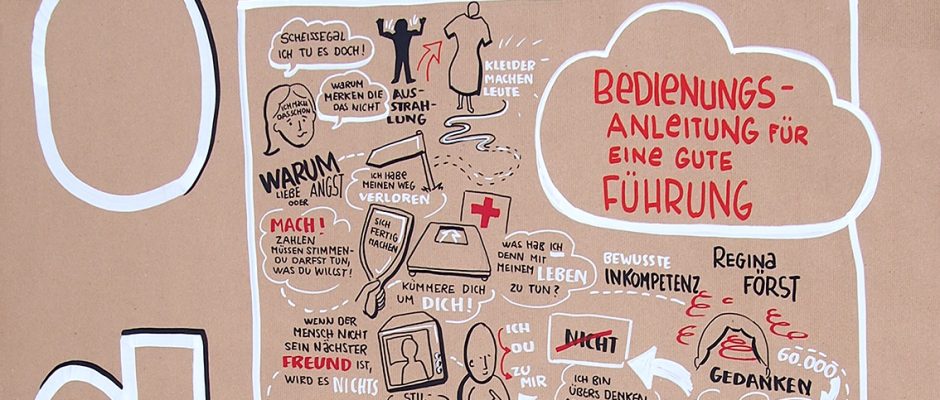 SCHEISSEGAL
ICH TU ES DOCH!
WARUM
MERKEN DIE
DAS NICHT
ICH MACH
DAS SCHON
AUS-
STRAH-
LUNG
KLEIDER
MACHEN
LEUTE
BEDIENUNGS-
ANLEITUNG FÜR
EINE GUTE
FÜHRUNG
WARUM
LIEBE ANGST
ODER
ICH HABE
MEINEN WEG
VERLOREN
MACH!
ZAHLEN
MÜSSEN STIMMEN-
DU DARFST TUN,
WAS DU WILLST!
SICH
FERTIG
MACHEN
KÜMMERE DICH
UM DICH!
WAS HAB ICH
DENN MIT
MEINEM LEBEN
ZU TUN?
BEWUSSTE
INKOMPETENZ
REGINA
FÖRST
WENN DER
MENSCH NICHT
SEIN NÄCHSTER
FREUND IST,
WIRD ES NICHTS
STIL-
ICH
DU
ZU
MIR
NICHT
ICH BIN
ÜBERS DENKEN
60.000
GEDANKEN